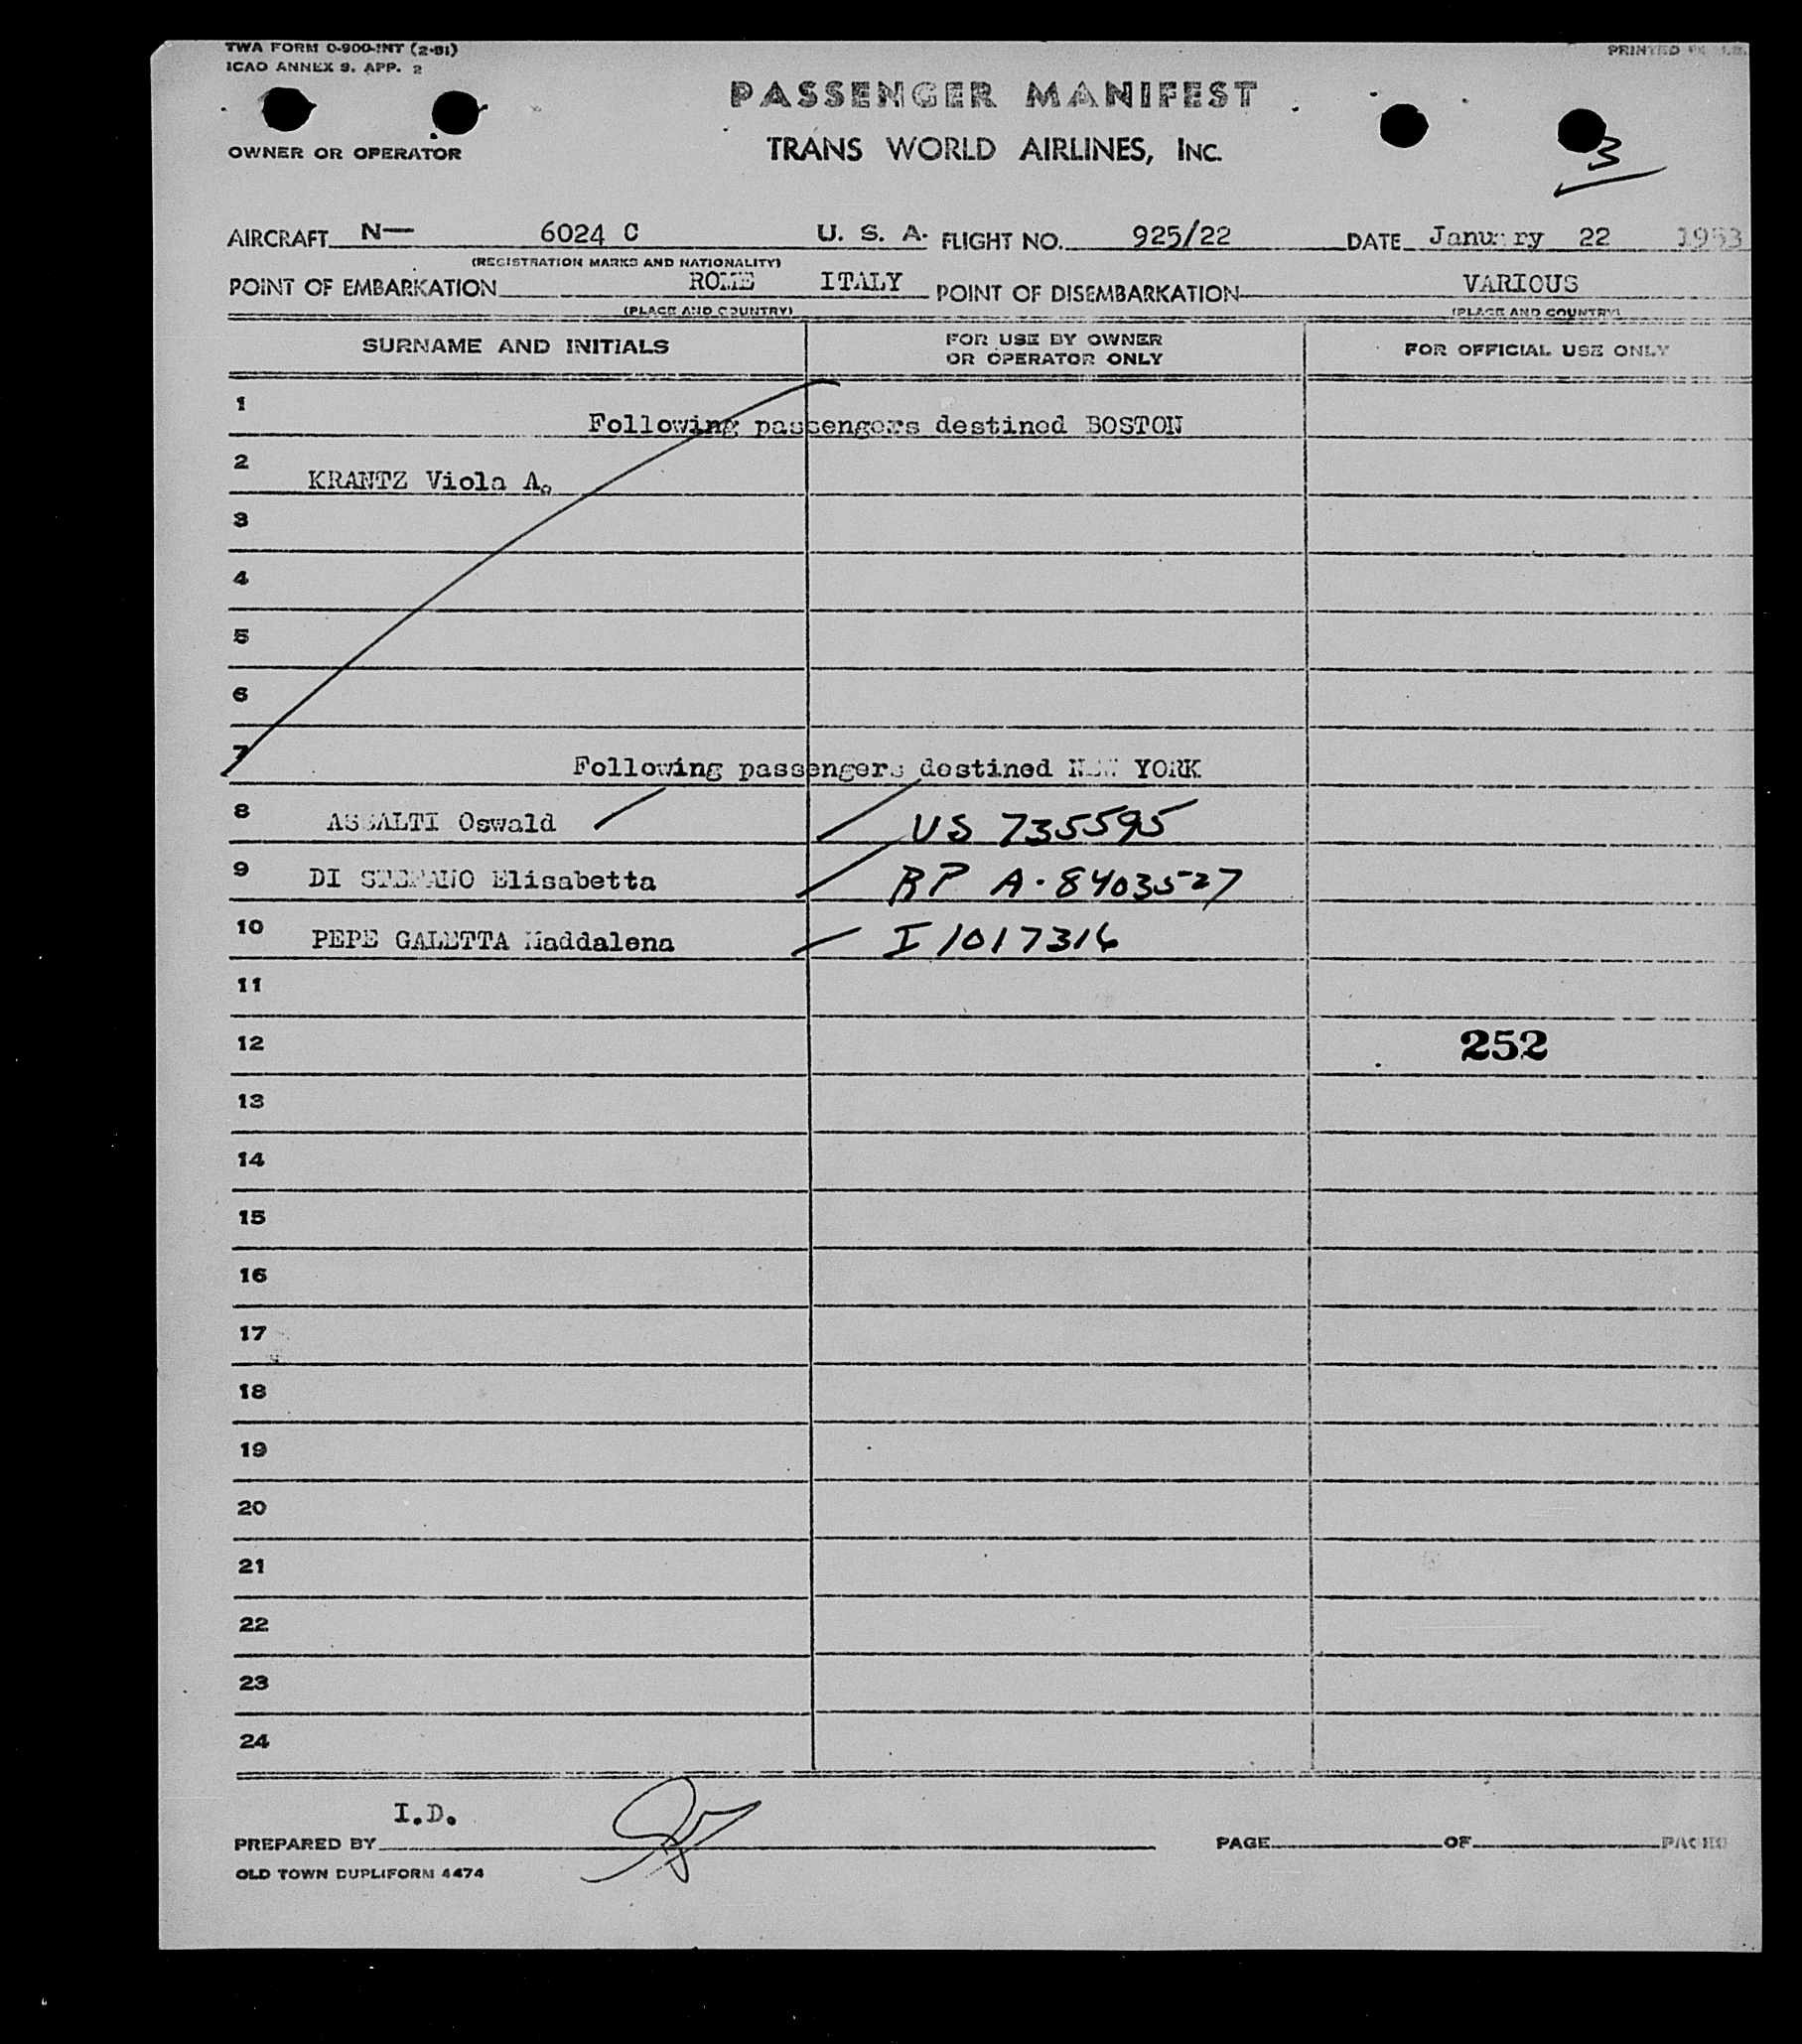 TWA FORM O-900-INT (2-51)
ICAO ANNEX 9. APP. 2
PRINTED
PASSENGER MANIFEST
OWNER OR OPERATOR
TRANS WORLD AIRLINES, INC.
3
AIRCRAFT N— 6024 C U. S. A. FLIGHT NO. 925/22 DATE January 22 1953
(REGISTRATION MARKS AND NATIONALITY)
POINT OF EMBARKATION ROME ITALY POINT OF DISEMBARKATION VARIOUS
(PLACE AND COUNTRY) (PLACE AND COUNTRY)
SURNAME AND INITIALS FOR USE BY OWNER OR OPERATOR ONLY FOR OFFICIAL USE ONLY
1 Following passengers destined BOSTON
2 KRANTZ Viola A.
3
4
5
6
7 Following passengers destined NEW YORK
8 ASSALTI Oswald US 735595
9 DI STEFANO Elisabetta RP A-8403527
10 PEPE GALETTA Maddalena I 1017316
11
12 252
13
14
15
16
17
18
19
20
21
22
23
24
I.D.
PREPARED BY PAGE OF PAGES
OLD TOWN DUPLIFORM 4474